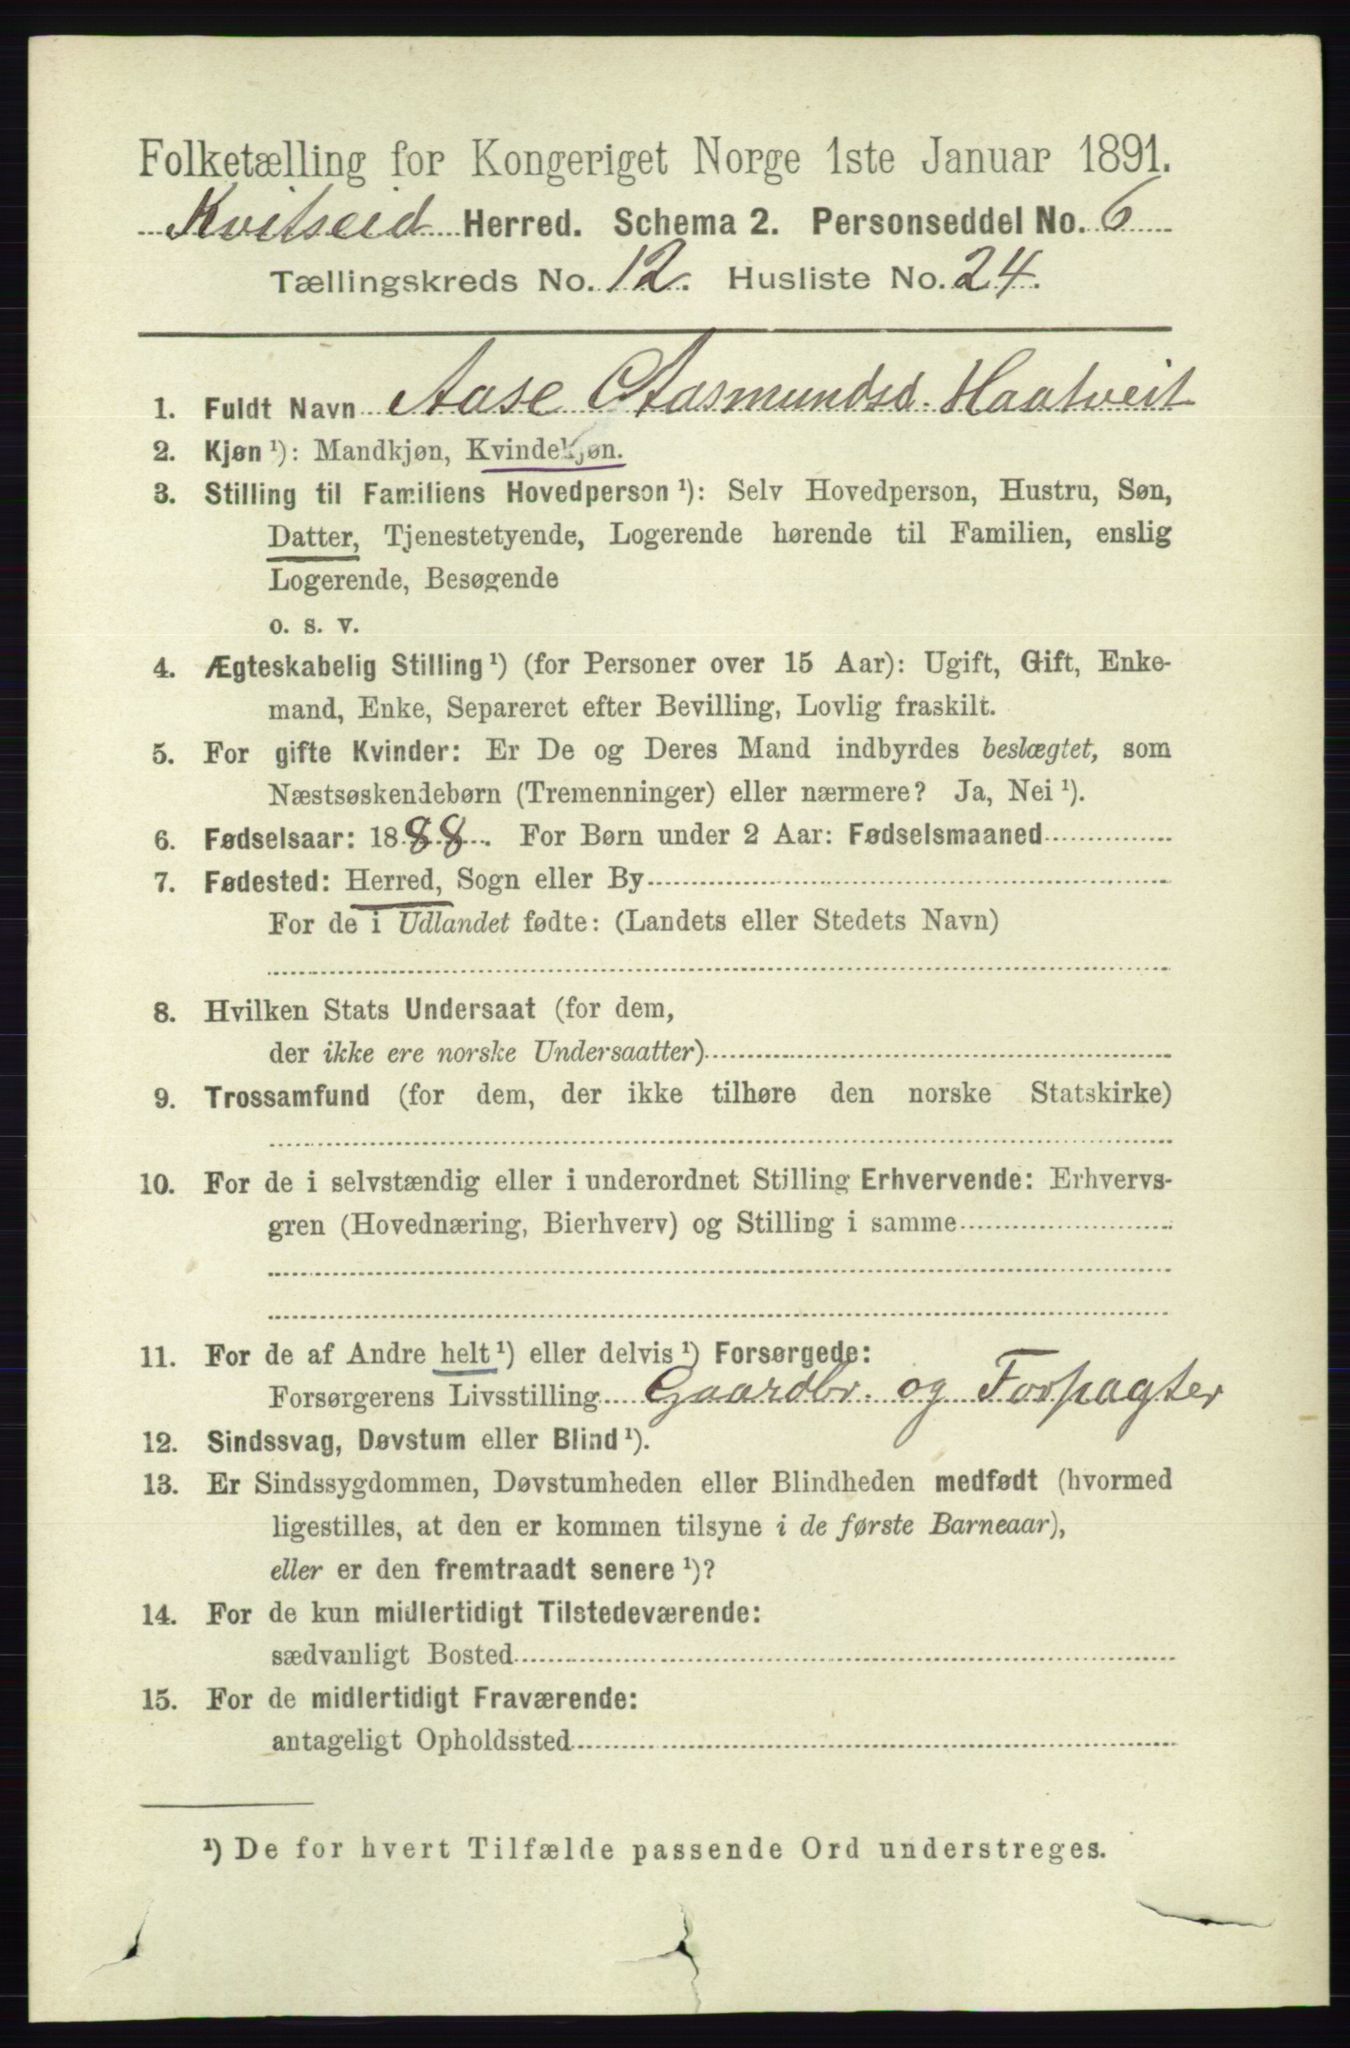 Folketælling for Kongeriget Norge 1ste Januar 1891.
Kvitseid Herred. Schema 2. Personseddel No. 6
Tællingskreds No. 12. Husliste No. 24.
1. Fuldt Navn Aase Aasmundsd. Haatveit
2. Kjøn ¹): Mandkjøn, Kvindekjøn.
3. Stilling til Familiens Hovedperson ¹): Selv Hovedperson, Hustru, Søn,
Datter, Tjenestetyende, Logerende hørende til Familien, enslig
Logerende, Besøgende
o. s. v.
4. Ægteskabelig Stilling ¹) (for Personer over 15 Aar): Ugift, Gift, Enke-
mand, Enke, Separeret efter Bevilling, Lovlig fraskilt.
5. For gifte Kvinder: Er De og Deres Mand indbyrdes beslægtet, som
Næstsøskendebørn (Tremenninger) eller nærmere? Ja, Nei ¹).
6. Fødselsaar: 1888. For Børn under 2 Aar: Fødselsmaaned
7. Fødested: Herred, Sogn eller By
For de i Udlandet fødte: (Landets eller Stedets Navn)
8. Hvilken Stats Undersaat (for dem,
der ikke ere norske Undersaatter)
9. Trossamfund (for dem, der ikke tilhøre den norske Statskirke)
10. For de i selvstændig eller i underordnet Stilling Erhvervende: Erhvervs-
gren (Hovednæring, Bierhverv) og Stilling i samme
11. For de af Andre helt ¹) eller delvis ¹) Forsørgede:
Forsørgerens Livsstilling Gaardbr. og Forpagter
12. Sindssvag, Døvstum eller Blind ¹).
13. Er Sindssygdommen, Døvstumheden eller Blindheden medfødt (hvormed
ligestilles, at den er kommen tilsyne i de første Barneaar),
eller er den fremtraadt senere ¹)?
14. For de kun midlertidigt Tilstedeværende:
sædvanligt Bosted
15. For de midlertidigt Fraværende:
antageligt Opholdssted
¹) De for hvert Tilfælde passende Ord understreges.